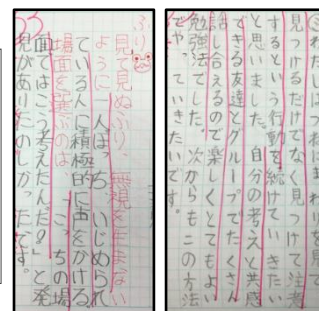 ③わたしはつねにまわりを見て
見つけるだけでなく見つけて注意
するという行動を続けていきたい
と思いました。自分の考えと共感
できる友達とグループでたくさん
話し合えるので楽しくとてもよい
勉強法でした。次からもこの方法
でやっていきたいです。
ふり
見て見ぬふり、無視を生まない
ように一人ぼっち、いじめられ
ている人に積極的に声をかける。
場面を選ぶのは、こっちの場
面ではこう考えたんだ。」と発
見がありたのしかったです。